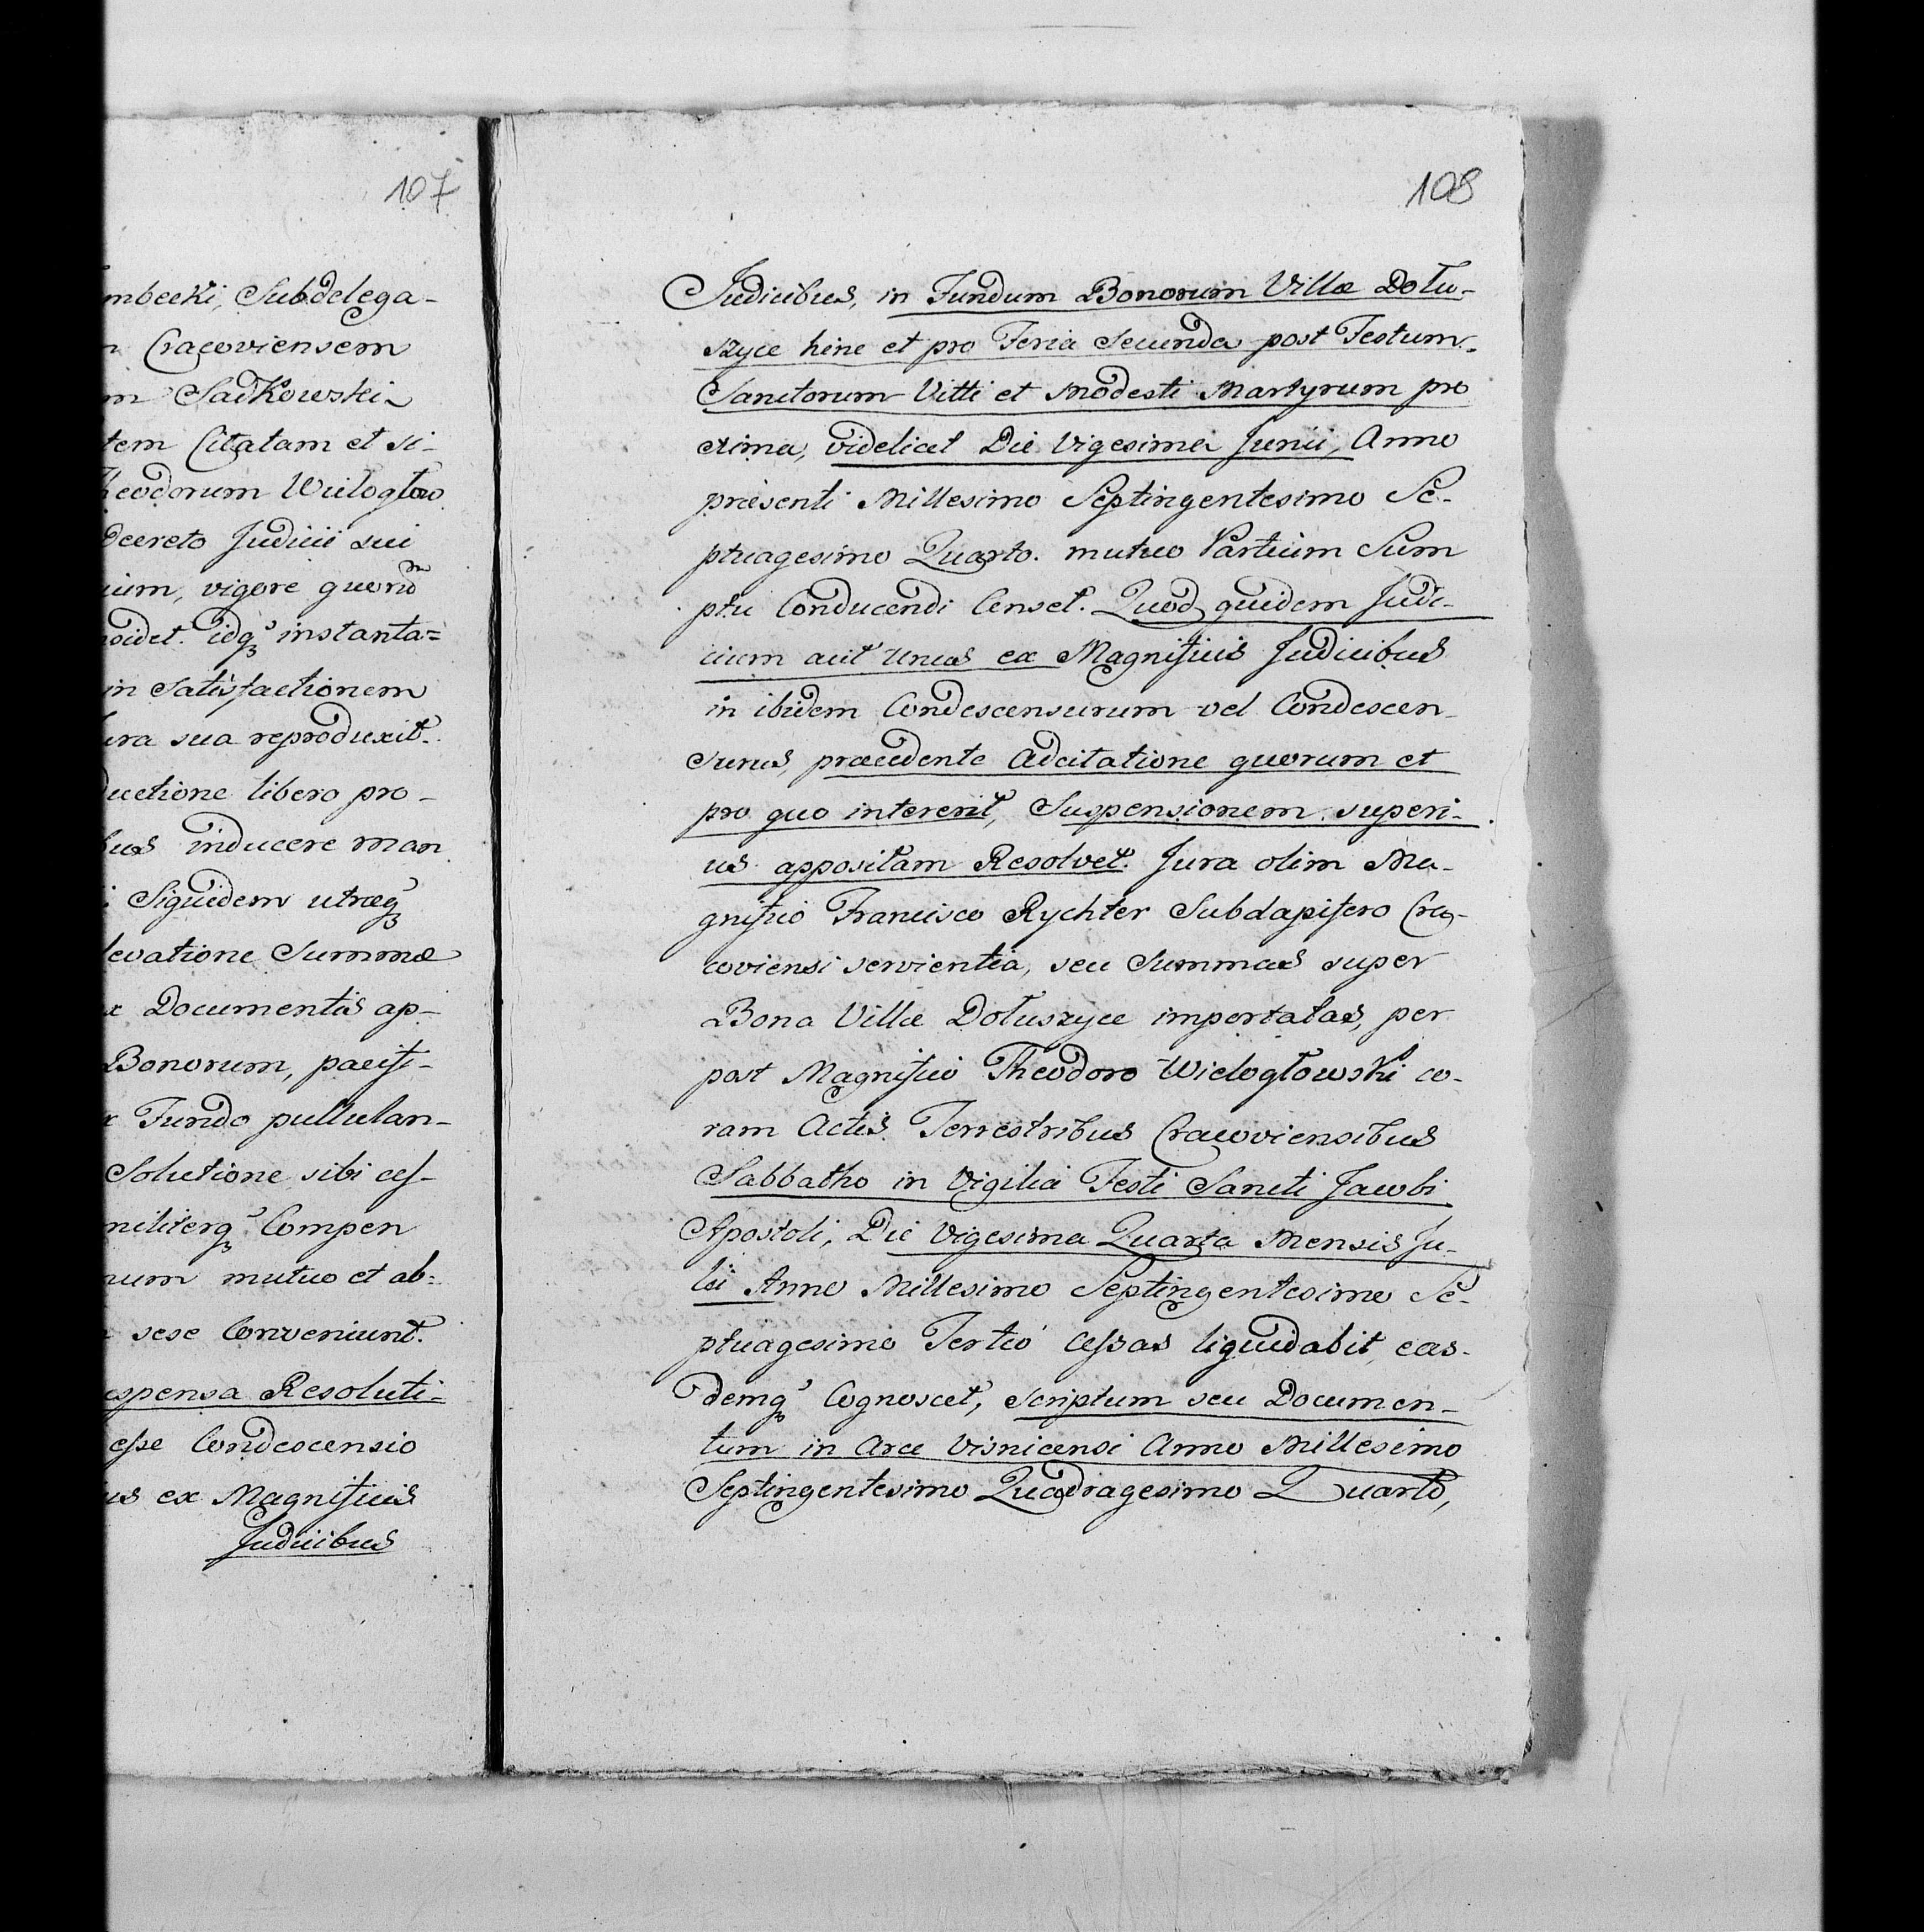 107
mbecki, Subdelega-
Cracoviensem
Sadkowski
tem Citatam et si-
Theodorum Wielogłow
decreto Judicii sui
ium, vigore quorũdm
idq₃ instanta=
in Satisfactionem
sua reproduxit.
ductione libero pro-
inducere man
Siquidem utraq₃
levatione Summæ
Documentis ap-
Bonorum, pacifi-
Fundo pullulan-
Solutione sibi ces-
militerq₃ Compen
mutuo et ab-
sese Conveniunt.
Resoluti-
esse Condescensio
ex Magnificis
Judicibus
108
Judicibus, in Fundum Bonorum Villæ Dołu-
szyce hinc et pro Feria Secunda post Festum
Sanctorum Vitti et Modesti Martyrum pro
xima, videlicet Die Vigesima Junii, Anno
præsenti Millesimo Septingentesimo Se-
ptuagesimo Quarto. mutuo Partium Sum
ptu Conducendi Censet. Quod quidem Judi-
cium aut unus ex Magnificis Judicibus
in ibidem Condescensurum vel Condescen-
surus, præcedente Adcitatione quorum et
pro quo intererit, Suspensionem superi-
us appositam Resolvet. Jura olim Ma-
gnifico Francisco Rychter Subdapifero Cra-
coviensi servientia, seu Summas super
Bona Villæ Dołuszyce importatas, per
post Magnifico Theodoro Wielogłowski co-
ram Actis Terrestribus Cracoviensibus
Sabbatho in Vigilia Festi Sancti Jacobi
Apostoli, Die Vigesima Quarta Mensis Ju-
lii Anno Millesimo Septingentesimo Se-
ptuagesimo Tertio Cessas liquidabit, eas-
demq₃ Cognoscet, Scriptum seu Documen-
tum in Arce Visnicensi Anno Millesimo
Septingentesimo Quadragesimo Quarto,